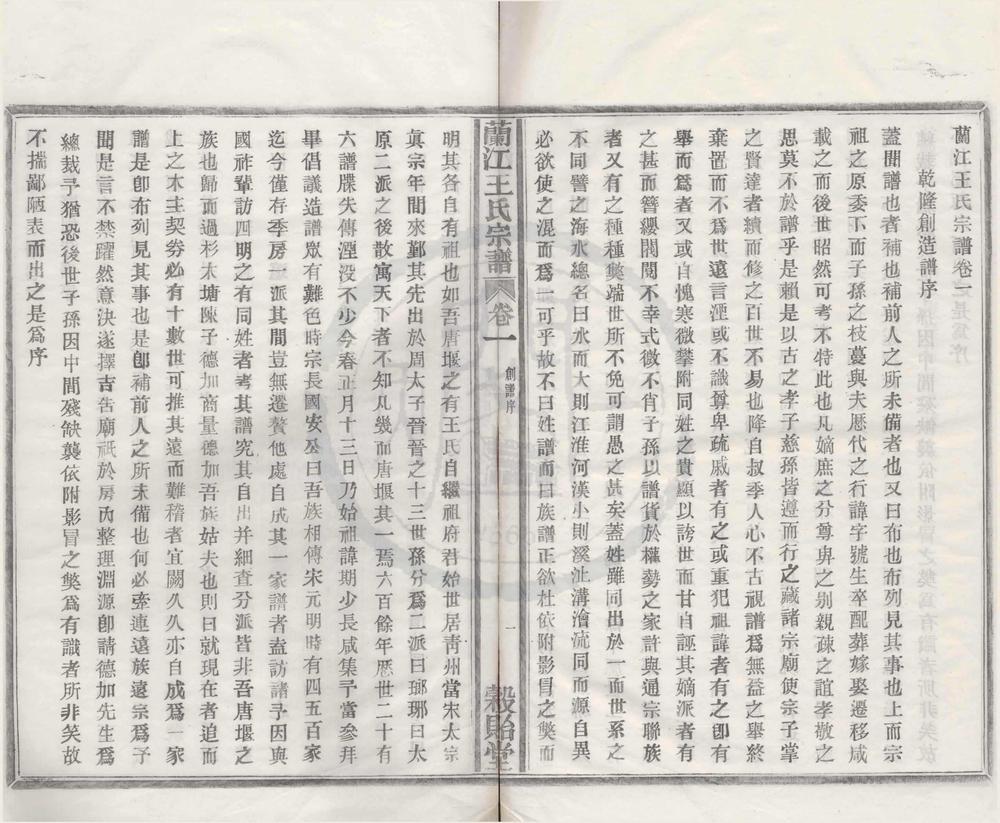 蘭江王氏宗譜卷一
乾隆創造譜序
蓋聞譜也者補也補前人之所未備者也又曰布也布列見其事也上而宗
祖之原委下而子孫之枝蔓與夫歷代之行諱字號生卒配葬嫁娶遷移咸
載之而後世昭然可考不特此也凡嫡庶之分尊卑之别親疎之誼孝敬之
思莫不於譜乎是賴是以古之孝子慈孫皆遵而行之藏諸宗廟使宗子掌
之賢達者續而修之百世不易也降自叔季人心不古視譜爲無益之舉終
棄置而不爲世遠言湮或不識尊卑疏戚者有之或重犯祖諱者有之卽有
舉而爲者又或自愧寒微攀附同姓之貴顯以誇世而甘自誣其嫡派者有
之甚而簪纓閥閱不幸式微不肖子孫以譜貨於權勢之家許與通宗聯族
者又有之種種獘端世所不免可謂愚之甚矣蓋姓雖同出於一而世系之
不同譬之海水總名曰水而大則江淮河漢小則溪沚溝澮流同而源自異
必欲使之混而爲一可乎故不曰姓譜而曰族譜正欲杜依附影冒之獘而
蘭江王氏宗譜
卷一
創譜序
一
穀貽堂
明其各自有祖也如吾唐堰之有王氏自繼祖府君始世居靑州當宋太宗
眞宗年間來鄞其先出於周太子晉晉之十三世孫分爲二派曰瑯琊曰太
原二派之後散寓天下者不知凡幾而唐堰其一焉六百餘年歷世二十有
六譜牒失傳湮没不少今春正月十三日乃始祖諱期少長咸集予當叅拜
畢倡議造譜眾有難色時宗長國安公曰吾族相傳宋元明時有四五百家
迄今僅存季房一派其間豈無遷贅他處自成其一家譜者盍訪諸予因與
國祚輩訪四明之有同姓者考其譜究其自出并細查分派皆非吾唐堰之
族也歸而過杉木塘陳子德加商量德加吾族姑夫也則曰就現在者追而
上之木主契劵必有十數世可推其遠而難稽者宜闕久久亦自成爲一家
譜是卽布列見其事也是卽補前人之所未備也何必牽連遠族遠宗爲予
聞是言不禁躍然意決遂擇吉吿廟祇於房内整理淵源卽請德加先生爲
總裁予猶恐後世子孫因中間殘缺襲依附影冒之獘爲有識者所非笑故
不揣鄙陋表而出之是爲序